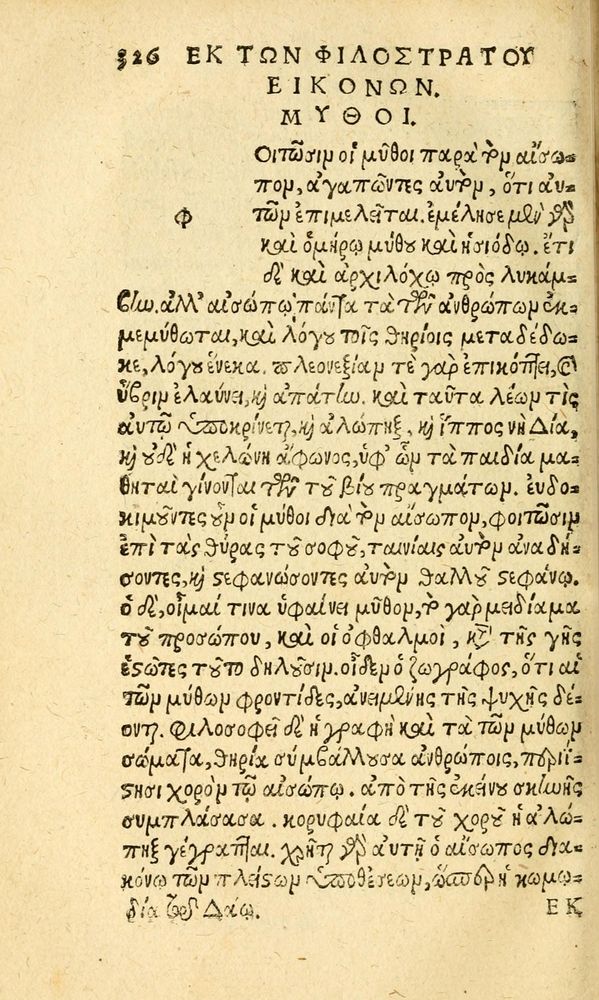 326 ΕΚ ΤΩΝ ΦΙΛΟΣΤΡΑΤΟΥ
ΕΙΚΟΝΩΝ.
ΜΥΘΟΙ.
Φοιτῶσιν οἱ μῦθοι παρὰ τὸν αἴσω-
πον, ἀγαπῶντες αὐτὸν, ὅτι αὐ-
τῶν ἐπιμελεῖται. ἐμέλησε μὲν γὰρ
καὶ ὁμήρῳ μύθου καὶ ἡσιόδῳ. ἔτι
δὲ καὶ ἀρχιλόχῳ πρὸς λυκάμ-
βην. ἀλλ' αἰσώπῳ πάντα τὰ τῶν ἀνθρώπων ἐκ-
μεμύθωται, καὶ λόγου τοῖς θηρίοις μεταδέδω-
κε, λόγου ἕνεκα. πλεονεξίαν τὲ γὰρ ἐπικόπτει, καὶ
ὕβριν ἐλαύνει, καὶ ἀπάτην. καὶ ταῦτα λέων τὶς
αὐτῷ ὑποκρίνεται, καὶ ἀλώπηξ, καὶ ἵππος νὴ Δία,
καὶ οὐδὲ ἡ χελώνη ἄφωνος, ὑφ' ὧν τὰ παιδία μα-
θηταὶ γίνονται τῶν τοῦ βίου πραγμάτων. εὐδο-
κιμοῦντες οὖν οἱ μῦθοι διὰ τὸν αἴσωπον, φοιτῶσιν
ἐπὶ τὰς θύρας τοῦ σοφοῦ, ταινίαις αὐτὸν ἀναδή-
σοντες, καὶ στεφανώσοντες αὐτὸν θαλλοῦ στεφάνῳ.
ὁ δὲ, οἶμαί τινα ὑφαίνει μῦθον, τὸ γὰρ μειδίαμα
τοῦ προσώπου, καὶ οἱ ὀφθαλμοὶ, κατὰ τῆς γῆς
ἑστῶτες τοῦτο δηλοῦσιν. οἶδεν ὁ ζωγράφος, ὅτι αἱ
τῶν μύθων φροντίδες, ἀνειμένης τῆς ψυχῆς δέ-
ονται. φιλοσοφεῖ δὲ ἡ γραφὴ καὶ τὰ τῶν μύθων
σώματα, θηρία συμβάλλουσα ἀνθρώποις, περιΐ-
στησι χορὸν τῷ αἰσώπῳ. ἀπὸ τῆς ἐκείνου σκηνῆς
συμπλάσασα. κορυφαία δὲ τοῦ χοροῦ ἡ ἀλώ-
πηξ γέγραπται. χρῆται γὰρ αὐτῇ ὁ αἴσωπος δια-
κόνῳ τῶν πλείστων ὑποθέσεων, ὥσπερ ἡ κωμῳ-
δία τῷ Δάῳ.
ΕΚ